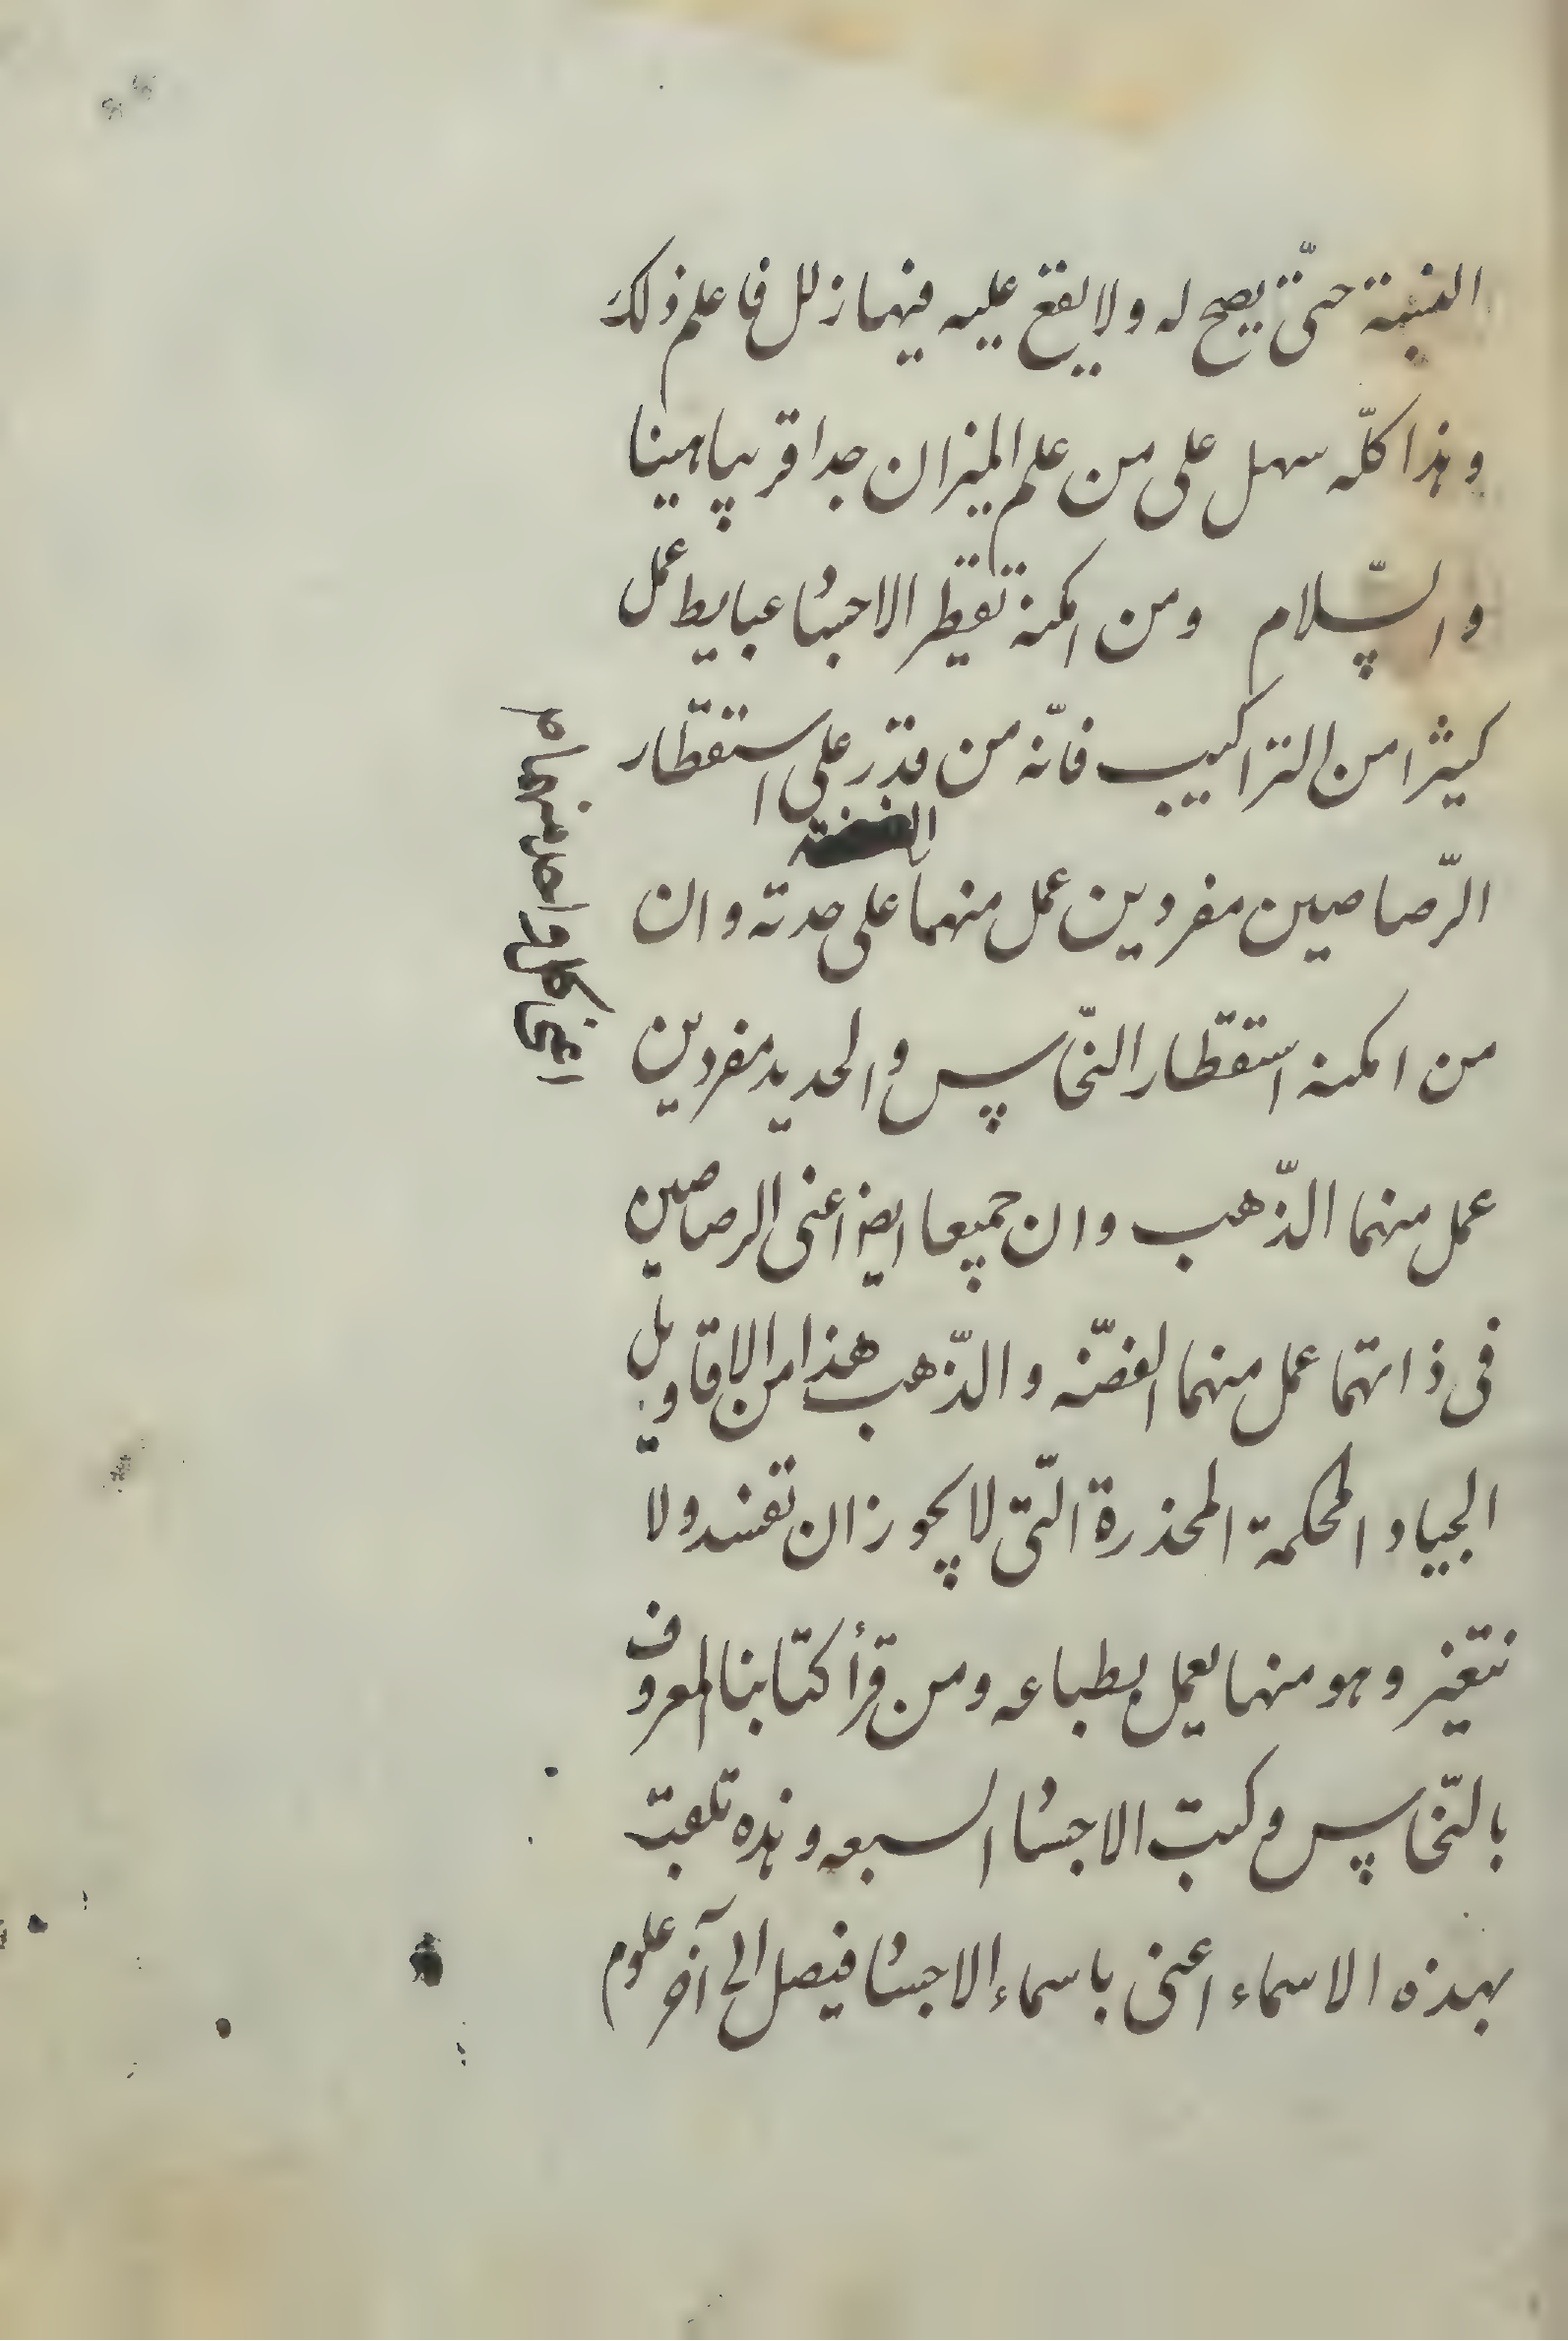 النسبة حتّى يصح له ولا يقع عليه فيها زلل فاعلم ذلك
وهذا كلّه سهل على من علم الميزان جدا قريبا هينا
والسّلام ومن امكنه تقطير الاجسا عبايط عمل
كثيرا من التراكيب فانّه من قدر على استقطار
الفضة
الرّصاصين مفردين عمل منهما على حدته وان
من امكنه استقطار النحّاس والحديد مفردين
عمل منهما الذّهب وان جميعا ايض اعنى الرصاصين
فى ذاتهما عمل منهما الفضّه والذّهب هذا من الاقاويل
الجياد المحكمة المحذرة الّتى لا يجوز ان تفسد ولا
تتغير وهو منها يعمل بطباعه ومن قرأ كتابنا المعروف
بالنّحاس وكتب الاجسا السبعه وهذه تلقبت
بهذه الاسماء اعنى باسماء الاجسا فيصل الى آخر علوم
اعنى كل واحد منهما م